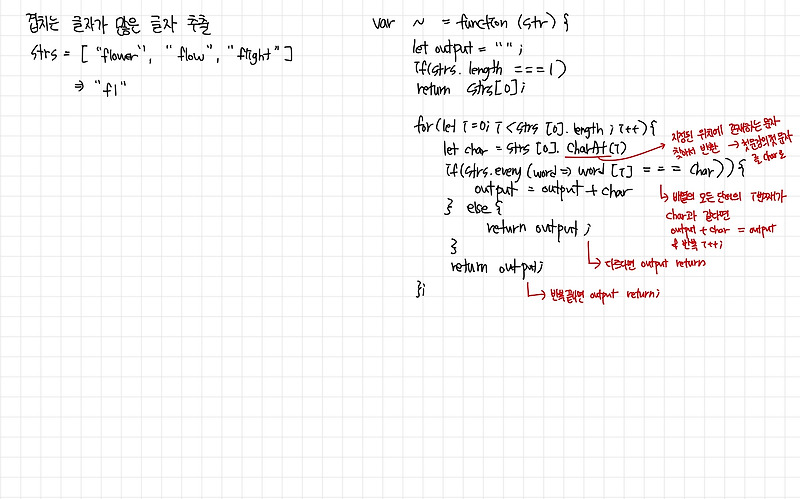 겹치는 글자가 많은 글자 추출
strs = [ "flower", "flow", "flight" ]
⇒ "fl"
var ~ = function (str) {
let output = "";
if(strs.length === 1)
return strs[0];
for(let i=0; i<strs[0].length; i++){
let char = strs[0].CharAt(i)
if(strs.every(word => word[i] === char)){
output = output + char
} else {
return output;
}
return output;
};
지정된 위치에 존재하는 문자
찾아서 반환 → 첫문단의 첫문자
를 char로
↳ 배열의 모든 단어의 i번째가
char과 같다면
output + char = output
반복 i++;
↳ 다르다면 output return
↳ 반복 끝나면 output return;